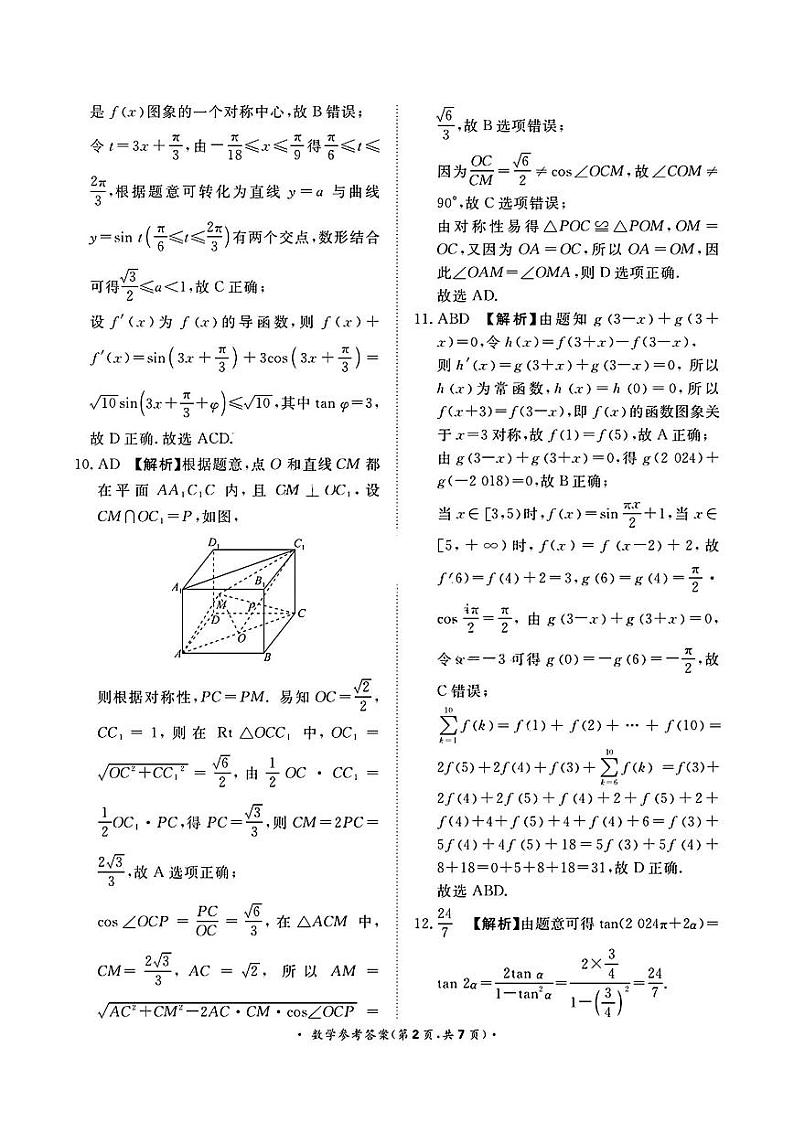 是 f(x)图象的一个对称中心,故 B 错误;
令 t=3x+π/3,由-π/18≤x≤π/9得π/6≤t≤
2π/3,根据题意可转化为直线 y=a 与曲线
y=sin t(π/6≤t≤2π/3)有两个交点,数形结合
可得√3/2≤a<1,故 C 正确;
设 f′(x)为 f(x)的导函数,则 f(x)+
f′(x)=sin(3x+π/3)+3cos(3x+π/3)=
√10 sin(3x+π/3+φ)≤√10,其中 tan φ=3,
故 D 正确.故选 ACD.
10. AD 【解析】根据题意,点 O 和直线 CM 都
在平面 AA₁C₁C 内,且 CM⊥OC₁.设
CM∩OC₁=P,如图,
D₁ C₁
A₁ B₁
M P
D C
O
A B
则根据对称性,PC=PM. 易知 OC=√2/2,
CC₁=1,则在 Rt△OCC₁ 中,OC₁=
√(OC²+CC₁²)=√6/2,由 1/2 OC·CC₁=
1/2 OC₁·PC,得 PC=√3/3,则 CM=2PC=
2√3/3,故 A 选项正确;
cos∠OCP=PC/OC=√6/3,在△ACM 中,
CM=2√3/3,AC=√2,所以 AM=
√(AC²+CM²-2AC·CM·cos∠OCP)=
√6/3,故 B 选项错误;
因为OC/CM=√6/2≠cos∠OCM,故∠COM≠
90°,故 C 选项错误;
由对称性易得△POC≌△POM,OM=
OC,又因为 OA=OC,所以 OA=OM,因
此∠OAM=∠OMA,则 D 选项正确.
故选 AD.
11. ABD 【解析】由题知 g(3-x)+g(3+
x)=0,令 h(x)=f(3+x)-f(3-x),
则 h′(x)=g(3+x)+g(3-x)=0,所以
h(x)为常函数,h(x)=h(0)=0,所以
f(x+3)=f(3-x),即 f(x)的函数图象关
于 x=3 对称,故 f(1)=f(5),故 A 正确;
由 g(3-x)+g(3+x)=0,得 g(2 024)+
g(-2 018)=0,故 B 正确;
当 x∈[3,5)时,f(x)=sin πx/2+1,当 x∈
[5,+∞)时,f(x)=f(x-2)+2,故
f(6)=f(4)+2=3,g(6)=g(4)=π/2·
cos 4π/2=π/2,由 g(3-x)+g(3+x)=0,
令 x=-3 可得 g(0)=-g(6)=-π/2,故
C 错误;
∑_{k=1}^{10} f(k)=f(1)+f(2)+…+f(10)=
2f(5)+2f(4)+f(3)+∑_{k=6}^{10} f(k)=f(3)+
2f(4)+2f(5)+f(4)+2+f(5)+2+
f(4)+4+f(5)+4+f(4)+6=f(3)+
5f(4)+4f(5)+18=5f(3)+5f(4)+
8+18=0+5+8+18=31,故 D 正确.
故选 ABD.
12. 24/7 【解析】由题意可得 tan(2 024π+2α)=
tan 2α=2tan α/(1-tan²α)=(2×3/4)/(1-(3/4)²)=24/7.
·数学参考答案(第 2 页,共 7 页)·